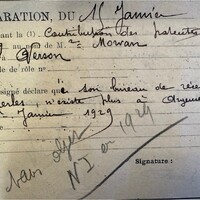 ARATION, DU 15 Janvier
ant la (1) Contribution des patentes
au nom de M. Morvan
Verson
de rôle n°
signé déclare que son bureau de
n'existe plus à
Janvier 1929
Sans objet
N I en 1929
Signature :